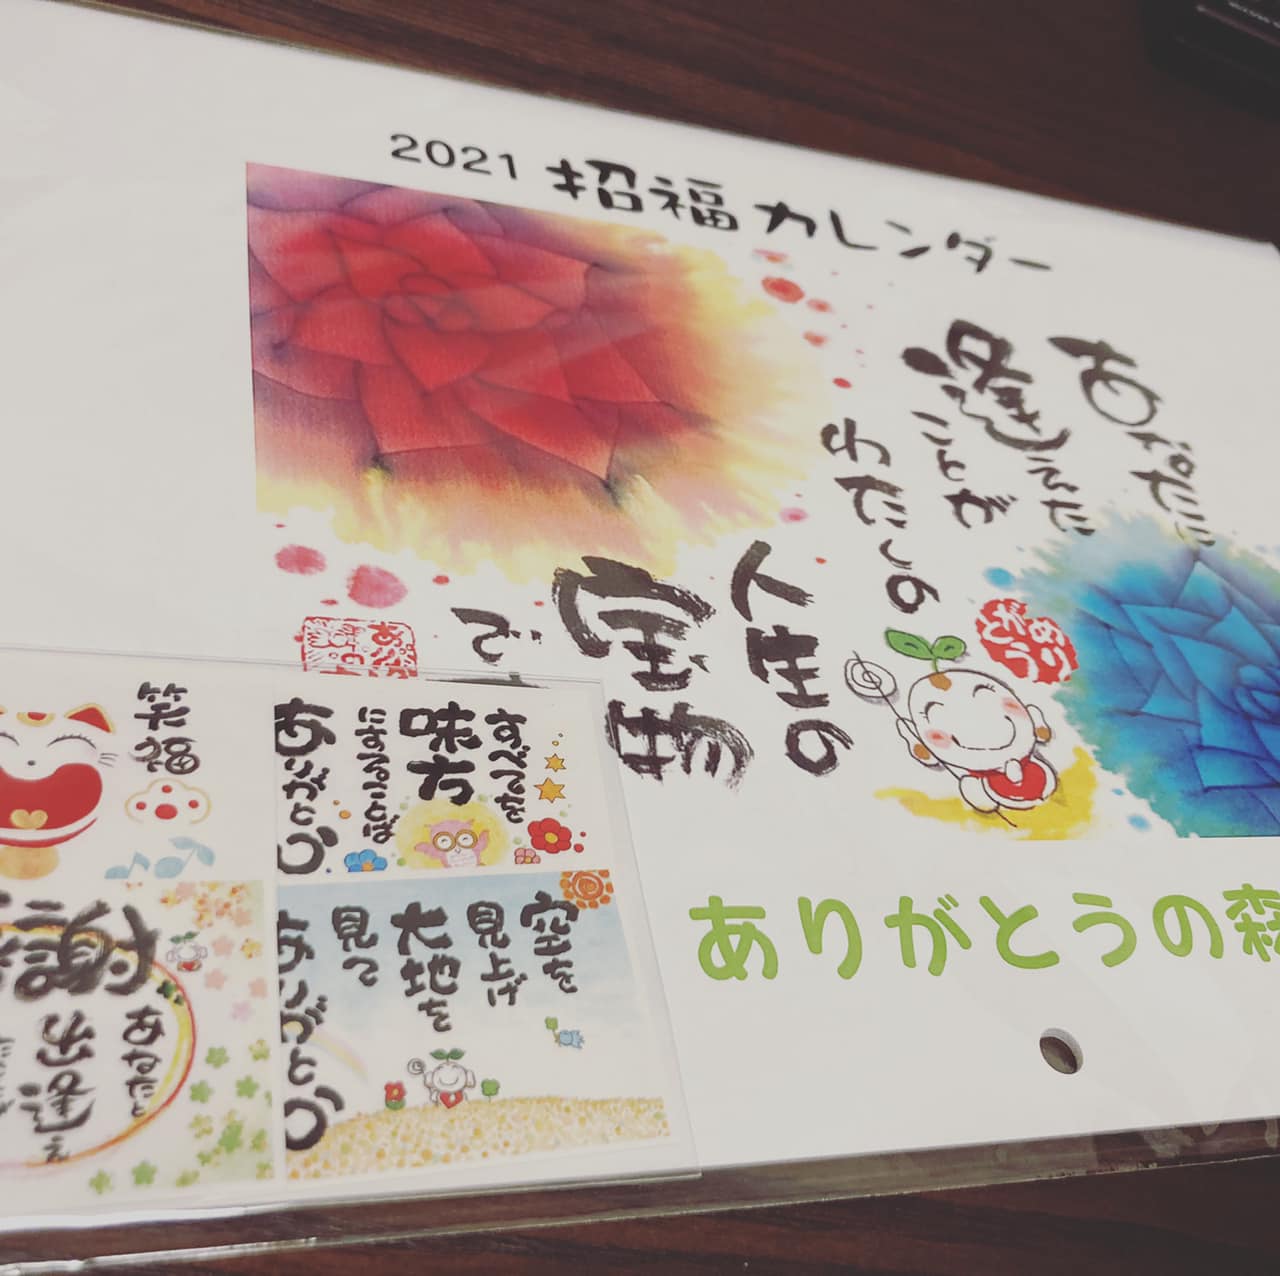 2021 招福カレンダー
あなたに
逢えた
ことが
わたしの
人生の
宝物
で
ありがとう
ありがとうの森
笑福
すべてを
味方
にすることば
ありがとう
空を
見上げ
大地を
見て
ありがとう
謝
あなたと
出逢え